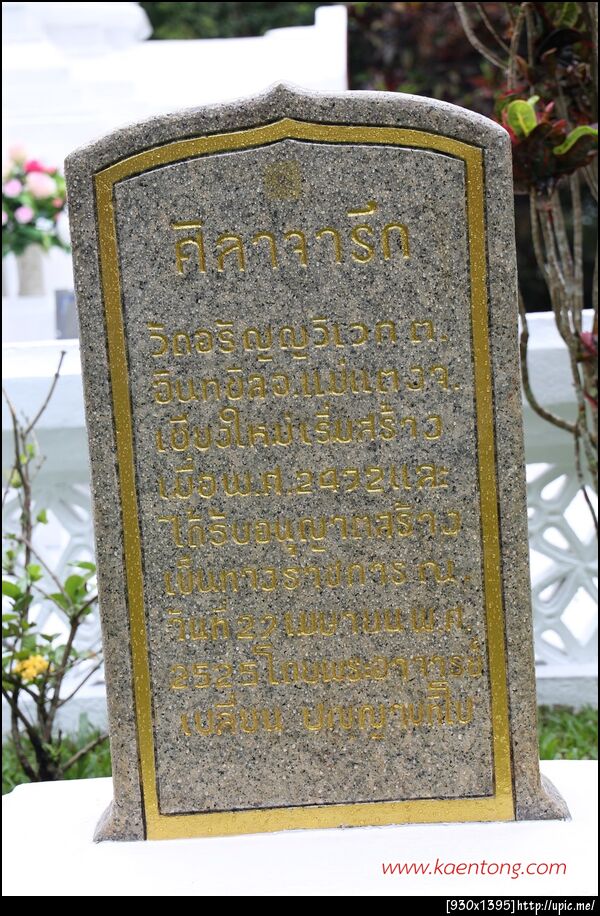 ศิลาจารึก
วัดอรัญญวิเวก ต.
อินทขิล อ.แม่แตง จ.
เชียงใหม่ เริ่มสร้าง
เมื่อ พ.ศ. 2452 และ
ได้รับอนุญาตสร้าง
เป็นทางราชการ ณ.
วันที่ 27 เมษายน พ.ศ.
2525 โดยพระอาจารย์
เปลี่ยน ปญฺญาปทีโป
www.kaentong.com
[930x1395]http://upic.me/